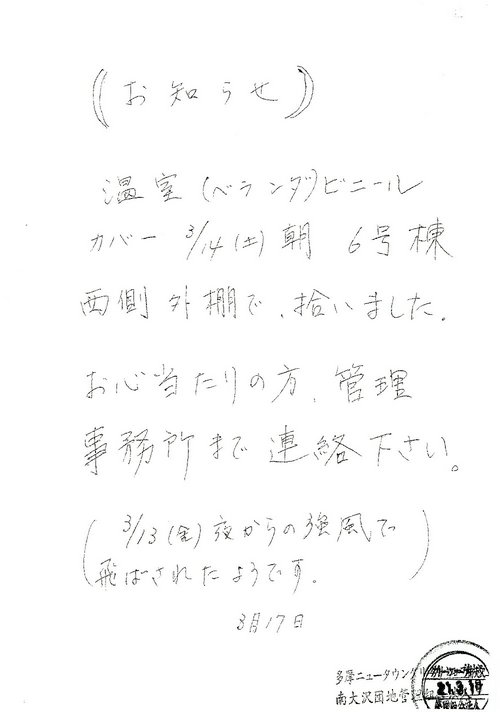 ((お知らせ))
温室(ベランダ)ビニール
カバー 3/14(土)朝 6号棟
西側 外棚で、拾いました。
お心当たりの方、管理
事務所まで 連絡下さい。
(3/13(金)夜からの強風で
飛ばされたようです。)
3月17日
多摩ニュータウン
南大沢団地管理
21.3.17